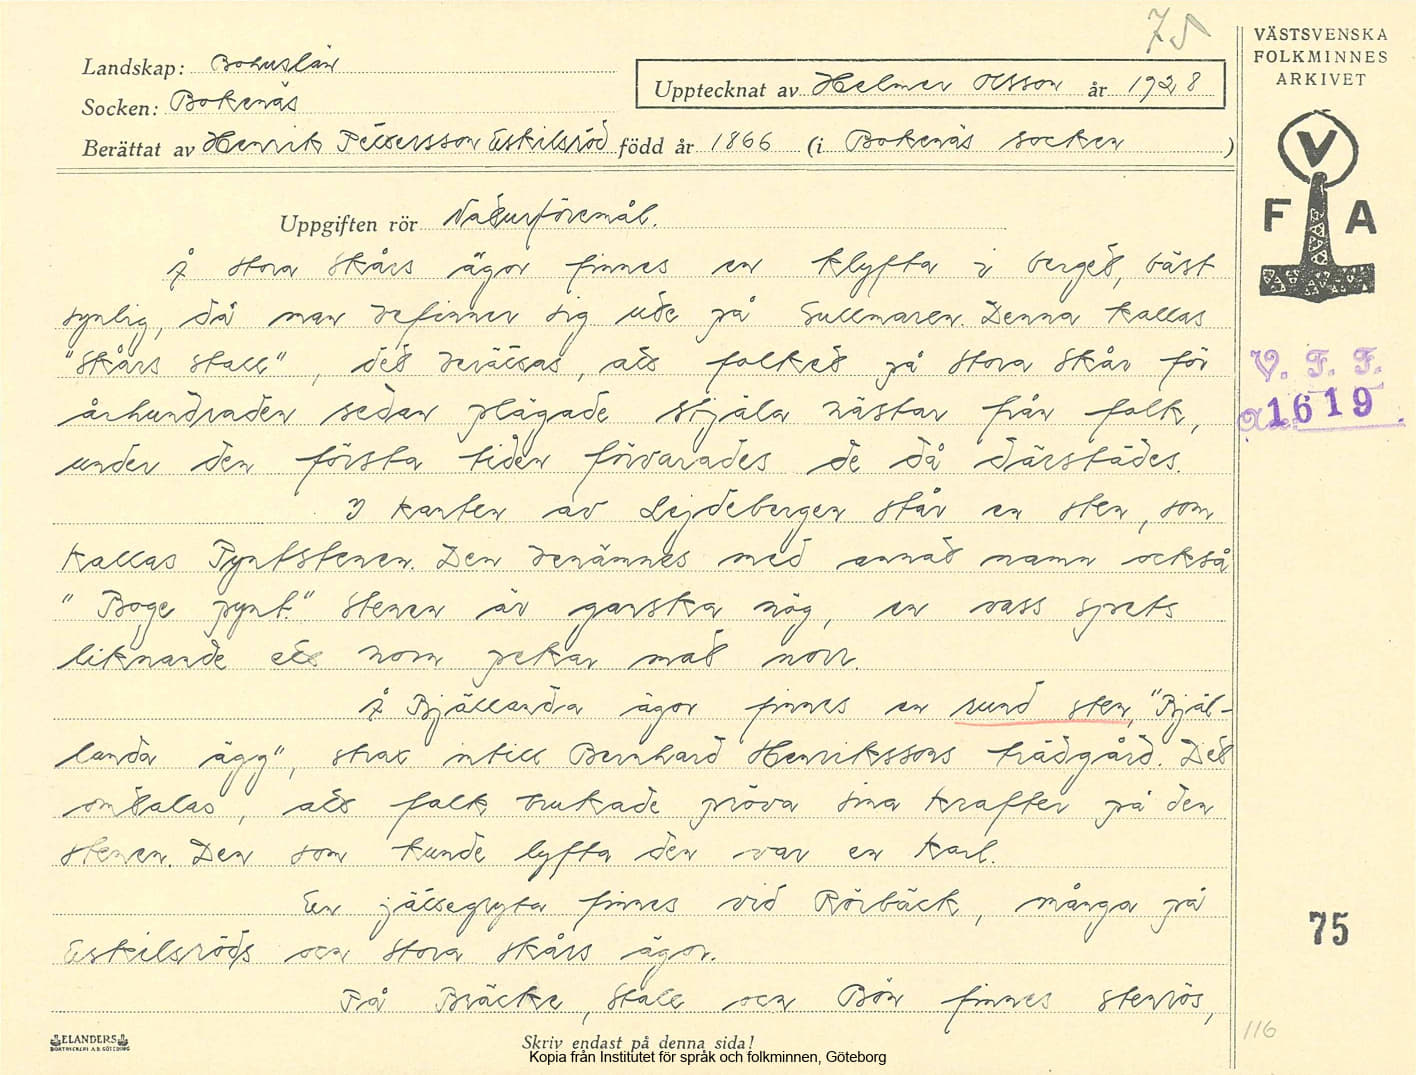 75
VÄSTSVENSKA
FOLKMINNES
ARKIVET
Landskap: Bohuslän
Socken: Bokenäs
Upptecknat av Helmer Olsson år 1928
Berättat av Henrik Pettersson Eskilsröd född år 1866 (i Bokenäs socken )
V
F A
Uppgiften rör Naturföremål.
Å Stora Skårs ägor finnes en klyfta i berget, bäst
synlig, då man befinner sig ute på Gullmaren. Denna kallas
"Skårs stall", det berättas, att folket på Stora Skår för
århundraden sedan plägade stjäla hästar från folk,
under den första tiden förvarades de då därstädes.
I kanten av Lejdebergen står en sten, som
kallas Pyntstenen. Den benämnes med annat namn också
"Boge pynt." Stenen är ganska hög, en vass spets
liknande ett horn pekar mot norr.
Å Bjällanda ägor finnes en rund sten, "Bjäl-
landa ägg", strax intill Bernhard Henrikssons trädgård. Det
omtalas, att folk brukade pröva sina krafter på den
stenen. Den som kunde lyfta den var en karl.
En jättegryta finnes vid Rörbäck, många på
Eskilsröds och Stora Skårs ägor.
På Bräcke, Stale och Bön finnes stenrös,
V. F. F.
1619
75
116
ELANDERS
BOKTRYCKERI A.B. GÖTEBORG
Skriv endast på denna sida!
Kopia från Institutet för språk och folkminnen, Göteborg